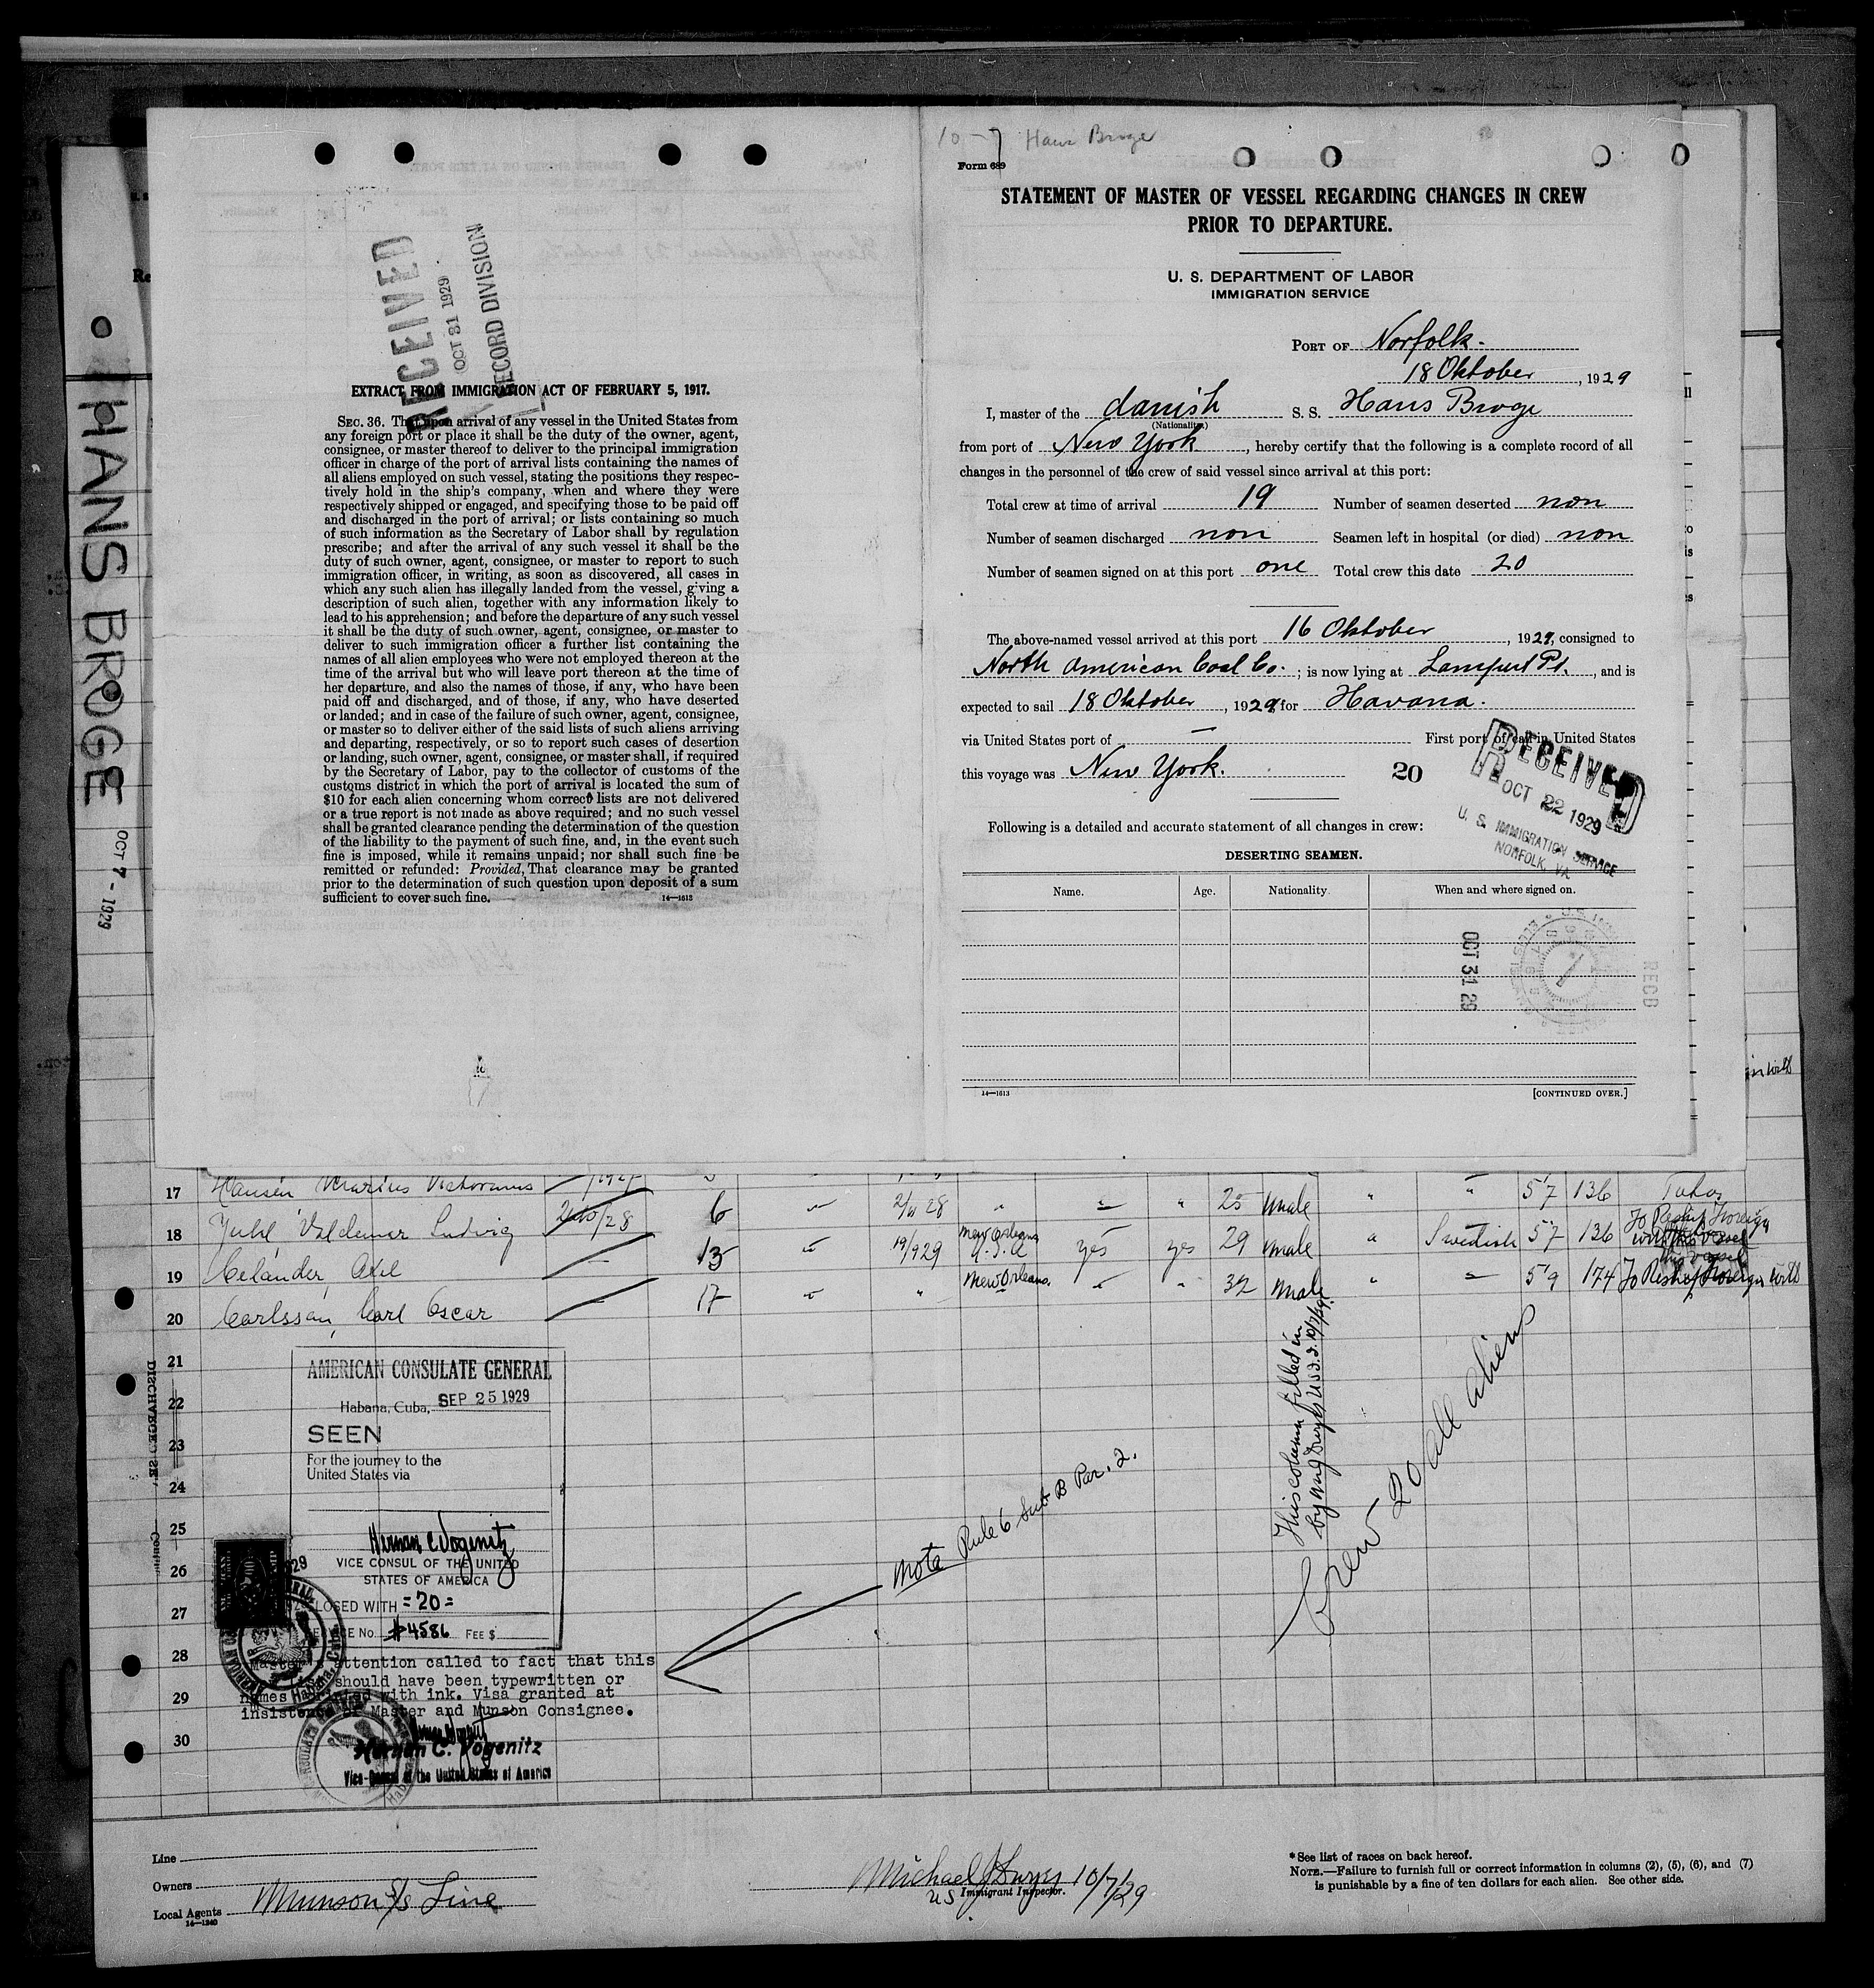 HANS BROGE
OCT 7 - 1929
RECEIVED
OCT 31 1929
RECORD DIVISION
EXTRACT FROM IMMIGRATION ACT OF FEBRUARY 5, 1917.
SEC. 36. That upon arrival of any vessel in the United States from
any foreign port or place it shall be the duty of the owner, agent,
consignee, or master thereof to deliver to the principal immigration
officer in charge of the port of arrival lists containing the names of
all aliens employed on such vessel, stating the positions they respec-
tively hold in the ship's company, when and where they were
respectively shipped or engaged, and specifying those to be paid off
and discharged in the port of arrival; or lists containing so much
of such information as the Secretary of Labor shall by regulation
prescribe; and after the arrival of any such vessel it shall be the
duty of such owner, agent, consignee, or master to report to such
immigration officer, in writing, as soon as discovered, all cases in
which any such alien has illegally landed from the vessel, giving a
description of such alien, together with any information likely to
lead to his apprehension; and before the departure of any such vessel
it shall be the duty of such owner, agent, consignee, or master to
deliver to such immigration officer a further list containing the
names of all alien employees who were not employed thereon at the
time of the arrival but who will leave port thereon at the time of
her departure, and also the names of those, if any, who have been
paid off and discharged, and of those, if any, who have deserted
or landed; and in case of the failure of such owner, agent, consignee,
or master so to deliver either of the said lists of such aliens arriving
and departing, respectively, or so to report such cases of desertion
or landing, such owner, agent, consignee, or master shall, if required
by the Secretary of Labor, pay to the collector of customs of the
customs district in which the port of arrival is located the sum of
$10 for each alien concerning whom correct lists are not delivered
or a true report is not made as above required; and no such vessel
shall be granted clearance pending the determination of the question
of the liability to the payment of such fine, and, in the event such
fine is imposed, while it remains unpaid; nor shall such fine be
remitted or refunded: Provided, That clearance may be granted
prior to the determination of such question upon deposit of a sum
sufficient to cover such fine.
14—1613
10-7 Hans Broge
Form 689
STATEMENT OF MASTER OF VESSEL REGARDING CHANGES IN CREW
PRIOR TO DEPARTURE.
U. S. DEPARTMENT OF LABOR
IMMIGRATION SERVICE
PORT OF Norfolk.
18 Oktober, 1929
I, master of the danish S. S. Hans Broge
(Nationality)
from port of New York, hereby certify that the following is a complete record of all
changes in the personnel of the crew of said vessel since arrival at this port:
Total crew at time of arrival 19 Number of seamen deserted non
Number of seamen discharged non Seamen left in hospital (or died) non
Number of seamen signed on at this port one Total crew this date 20
The above-named vessel arrived at this port 16 Oktober, 1929, consigned to
North American Coal Co.; is now lying at Lampert Pt., and is
expected to sail 18 Oktober, 1929, for Havana.
via United States port of — First port of call in United States
this voyage was New York. 20
RECEIVED
OCT 22 1929
U. S. IMMIGRATION SERVICE
NORFOLK, VA
Following is a detailed and accurate statement of all changes in crew:
DESERTING SEAMEN.
Name. Age. Nationality. When and where signed on.
OCT 31 29
RECD
14—1613 [CONTINUED OVER.]
17 Hansen Marius
18 Juhl, Valdemar Ludwig 6 25 male " 5 7 136
19 Celander, Axel 13 19/9 29 New Orleans U.S.A yes yes 29 male " Swedish 5 7 136 To Reship Foreign
20 Carlsson, Carl Oscar 17 " New Orleans. " 32 male " 5 9 174 To Reship Foreign with this vessel
21
22
23
24
25
26
27
28
29
30
AMERICAN CONSULATE GENERAL
Habana, Cuba, SEP 25 1929
SEEN
For the journey to the
United States via
Herman C Vogenitz
VICE CONSUL OF THE UNITED
STATES OF AMERICA
CLOSED WITH =20=
SERVICE No. #4586 FEE $
Master's attention called to fact that this
should have been typewritten or
names with ink. Visa granted at
insistence of Master and Munson Consignee.
Herman C. Vogenitz
Vice-Consul of the United States of America
Note Rule 6 Sub B Par. 2.
This column filled in
by 10/7/29
Crew 20 all aliens
Line
Owners
Local Agents Munson S/S Line
14—1240
Michael J Duryes 10/7/29
US Immigrant Inspector.
* See list of races on back hereof.
NOTE.—Failure to furnish full or correct information in columns (2), (5), (6), and (7)
is punishable by a fine of ten dollars for each alien. See other side.